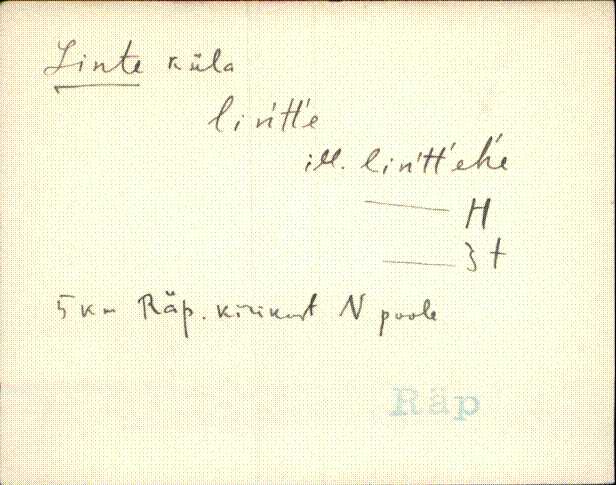 Linte küla
lińt́t́e
ill. lińt́t́eh́e
—— H
—— ʒ t
5 km Räp. kirikust N poole
Räp